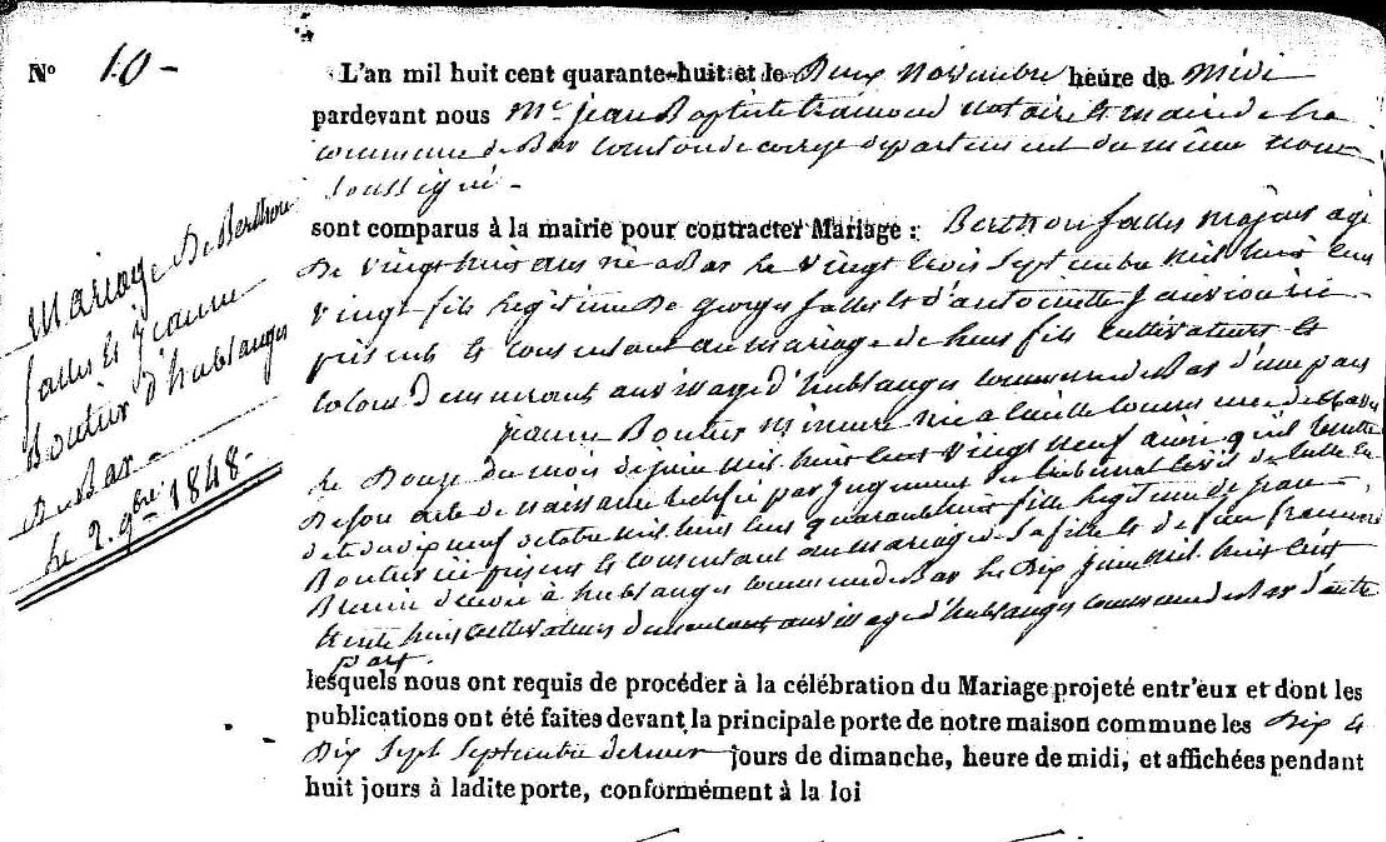 N° 10 -
Mariage De Berthon
falles et jeanne
Boutin d'hublanges
De Bar -
Le 2. 9bre 1848 -
L'an mil huit cent quarante-huit et le Deux Novembre heure de Midi
pardevant nous Mr jean Baptiste tramond notaire et maire de la
commune de Bar Canton de correze departement du même nom
soussigné -
sont comparus à la mairie pour contracter Mariage : Berthon falles majeur agé
De vingt huit ans né a Bar le vingt trois septembre mil huit cent
vingt fils legitime De georges falles et d'antoinette ici
présents et consentant au mariage de leur fils cultivateurs et
colons Demeurant au village d'hublanges commune de Bar d'une part
jeanne mineure née a commune de
le Douze du mois de juin mil huit cent vingt neuf ainsi qu'il resulte
De son acte de naissance rectifié par jugement du tribunal civil de tulle en
date du dix neuf octobre mil huit cent quarante huit fille legitime de jean
ici présent et consentant au mariage de sa fille et de feue françoise
décédée à hublanges commune de Bar le Dix juin mil huit cent
trente huit cultivateurs demeurant au village d'hublanges commune de Bar d'autre
part.
lesquels nous ont requis de procéder à la célébration du Mariage projeté entr'eux et dont les
publications ont été faites devant la principale porte de notre maison commune les Dix et
Dix sept septembre dernier jours de dimanche, heure de midi, et affichées pendant
huit jours à ladite porte, conformément à la loi